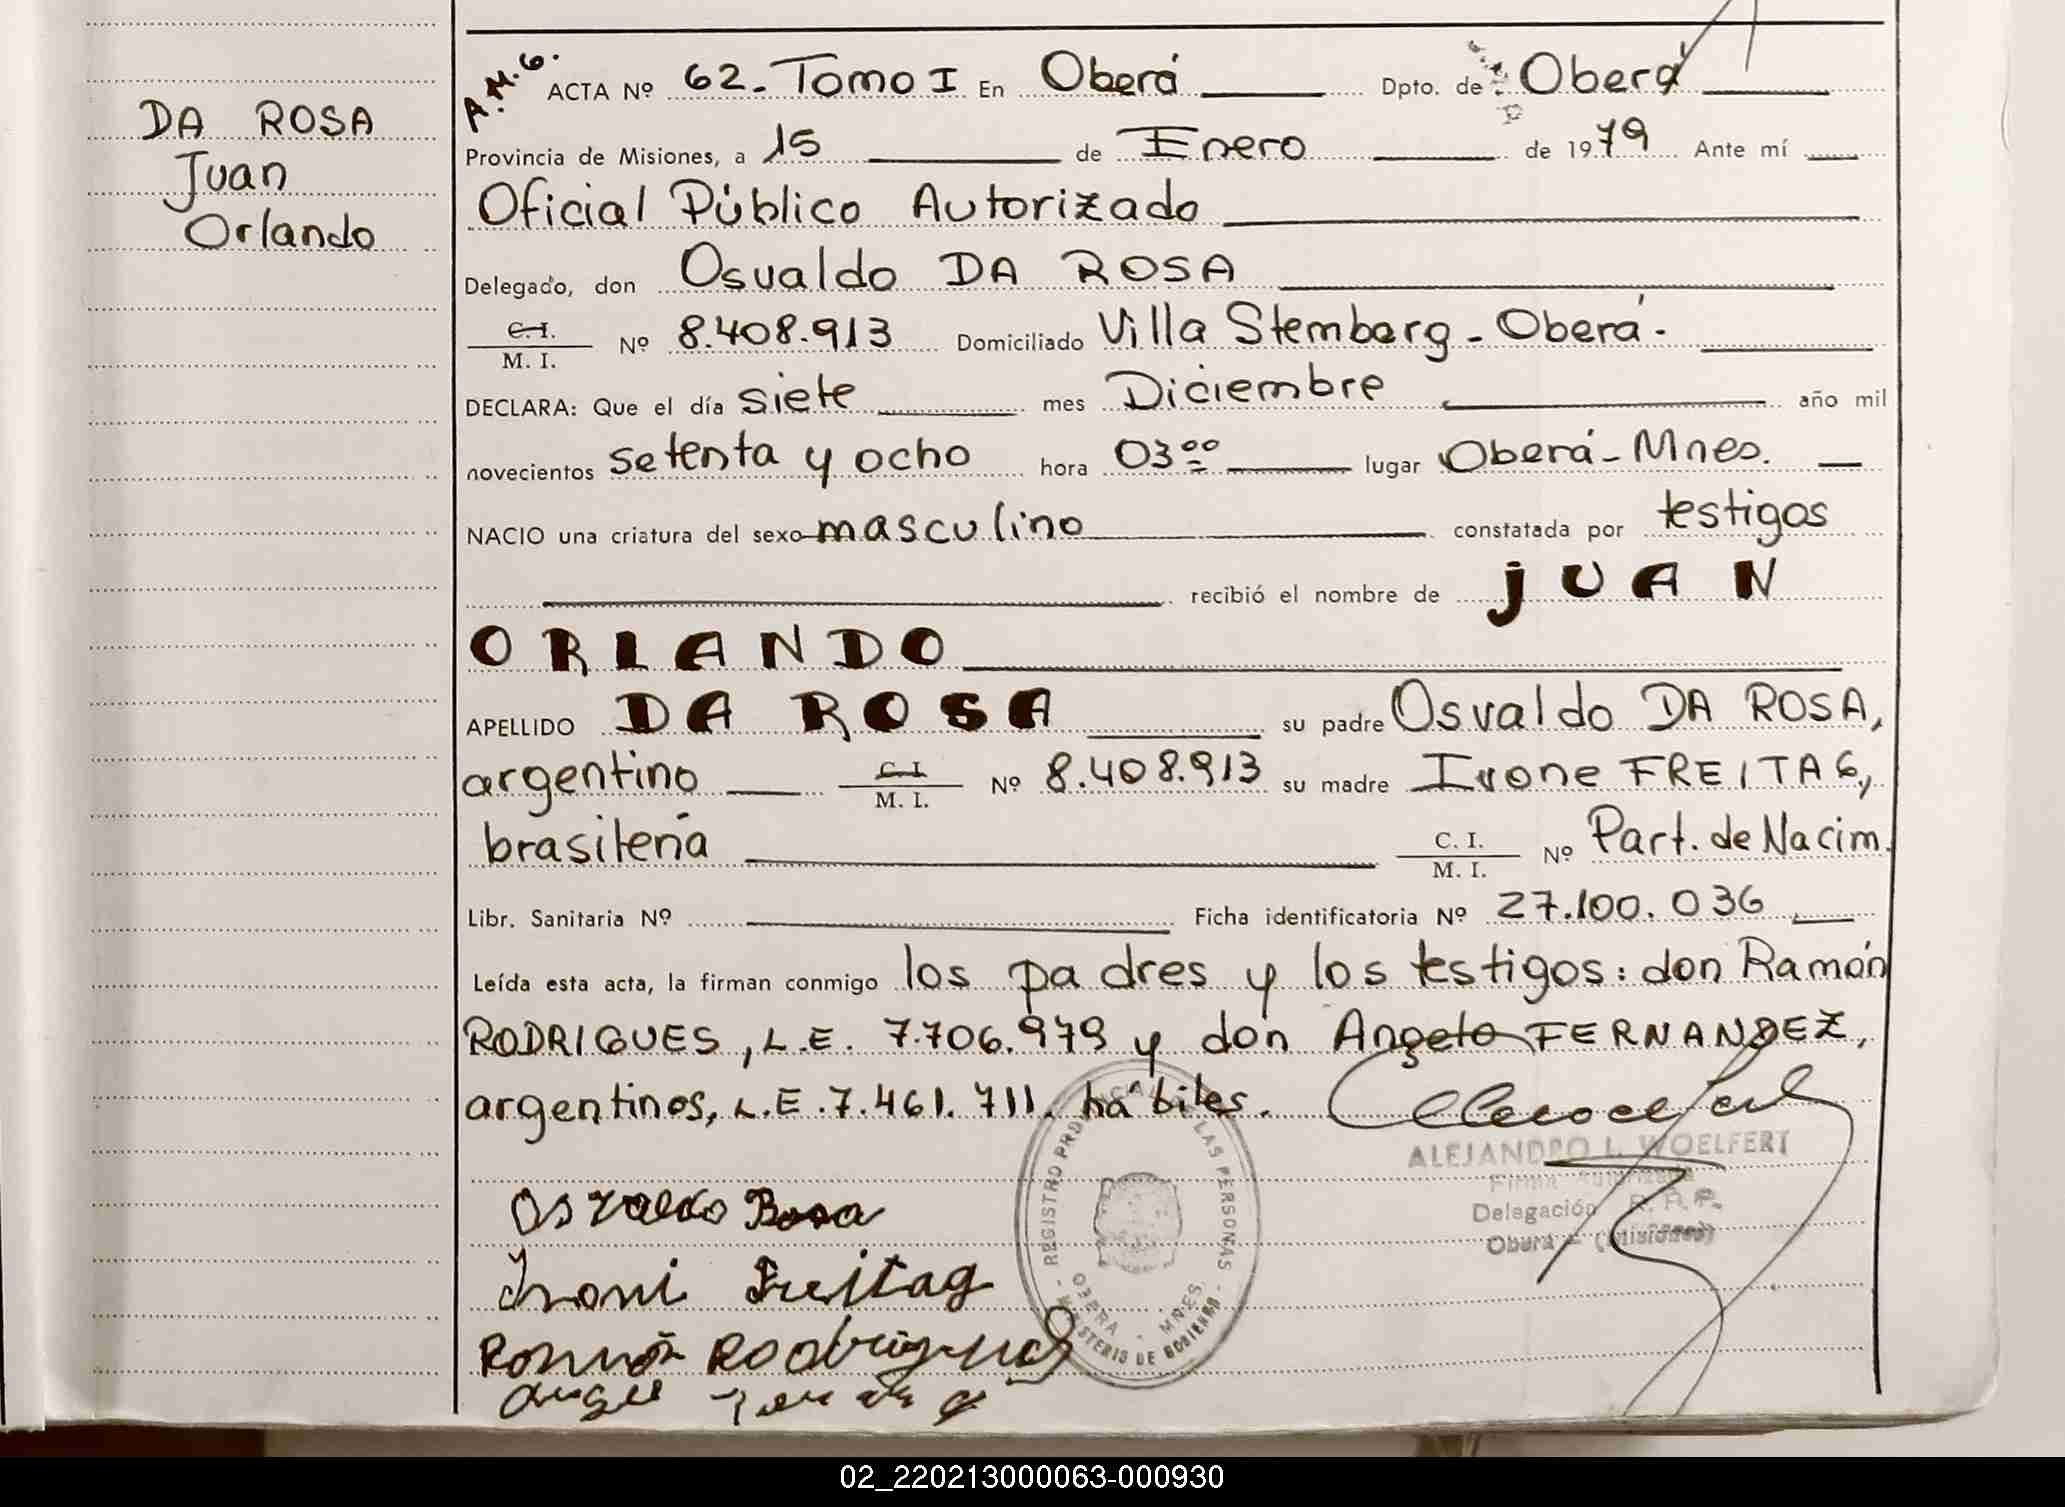 DA ROSA
Juan
Orlando
A.M.G.
ACTA Nº 62. Tomo I En Oberá Dpto. de Oberá
Provincia de Misiones, a 15 de Enero de 1979 Ante mí
Oficial Público Autorizado
Delegado, don Osvaldo DA ROSA
C.I.
M. I. Nº 8.408.913 Domiciliado Villa Stemberg - Oberá.
DECLARA: Que el día siete mes Diciembre año mil
novecientos setenta y ocho hora 03 00 lugar Oberá - Mnes.
NACIO una criatura del sexo masculino constatada por testigos
recibió el nombre de JUAN
ORLANDO
APELLIDO DA ROSA su padre Osvaldo DA ROSA,
argentino C. I. M. I. Nº 8.408.913 su madre Ivone FREITAG,
brasileña C. I. M. I. Nº Part. de Nacim.
Libr. Sanitaria Nº Ficha identificatoria Nº 27.100.036
Leída esta acta, la firman conmigo los padres y los testigos: don Ramón
RODRIGUES, L.E. 7.706.979 y don Angelo FERNANDEZ,
argentinos, L.E. 7.461.711, hábiles.
ALEJANDRO L. WOELFERT
Firma Autorizada
Delegación R. P. P.
Oberá - (Misiones)
REGISTRO PROVINCIAL DE LAS PERSONAS
OBERA - MNES.
MINISTERIO DE GOBIERNO
Osvaldo Rosa
Ivoni Freitag
Ramón Rodrigues
02_220213000063-000930